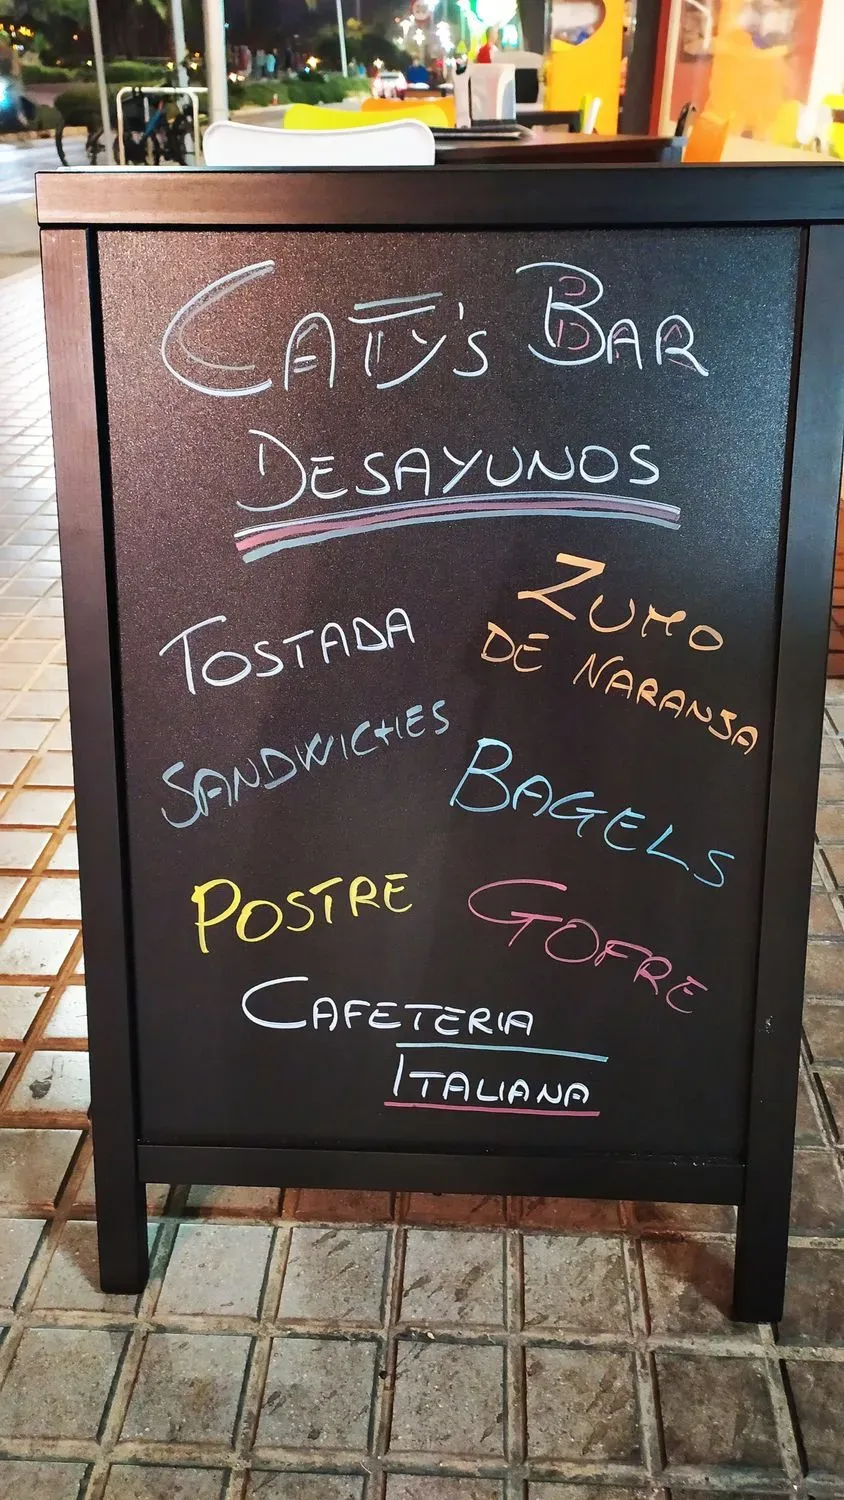 CATTY'S BAR
DESAYUNOS
TOSTADA
ZUMO
DE NARANJA
SANDWICHES
BAGELS
POSTRE
GOFRE
CAFETERIA
ITALIANA